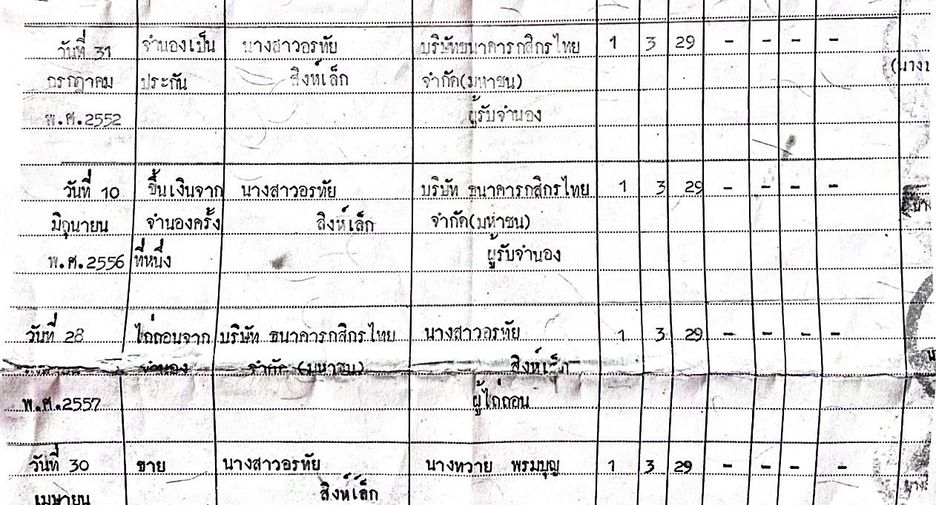 วันที่ 31 จำนองเป็น นางสาวอรทัย บริษัทธนาคารกสิกรไทย 1 3 29 - - - -
กรกฎาคม ประกัน สิงห์เล็ก จำกัด(มหาชน) (นาง
พ.ศ.2552 ผู้รับจำนอง
วันที่ 10 ขึ้นเงินจาก นางสาวอรทัย บริษัท ธนาคารกสิกรไทย 1 3 29 - - - -
มิถุนายน จำนองครั้ง สิงห์เล็ก จำกัด(มหาชน)
พ.ศ.2556 ที่หนึ่ง ผู้รับจำนอง
วันที่ 28 ไถ่ถอนจาก บริษัท ธนาคารกสิกรไทย นางสาวอรทัย 1 3 29 - - - -
จำนอง จำกัด (มหาชน) สิงห์เล็ก
พ.ศ.2557 ผู้ไถ่ถอน
วันที่ 30 ขาย นางสาวอรทัย นางทวาย พรมบุญ 1 3 29 - - - -
เมษายน สิงห์เล็ก